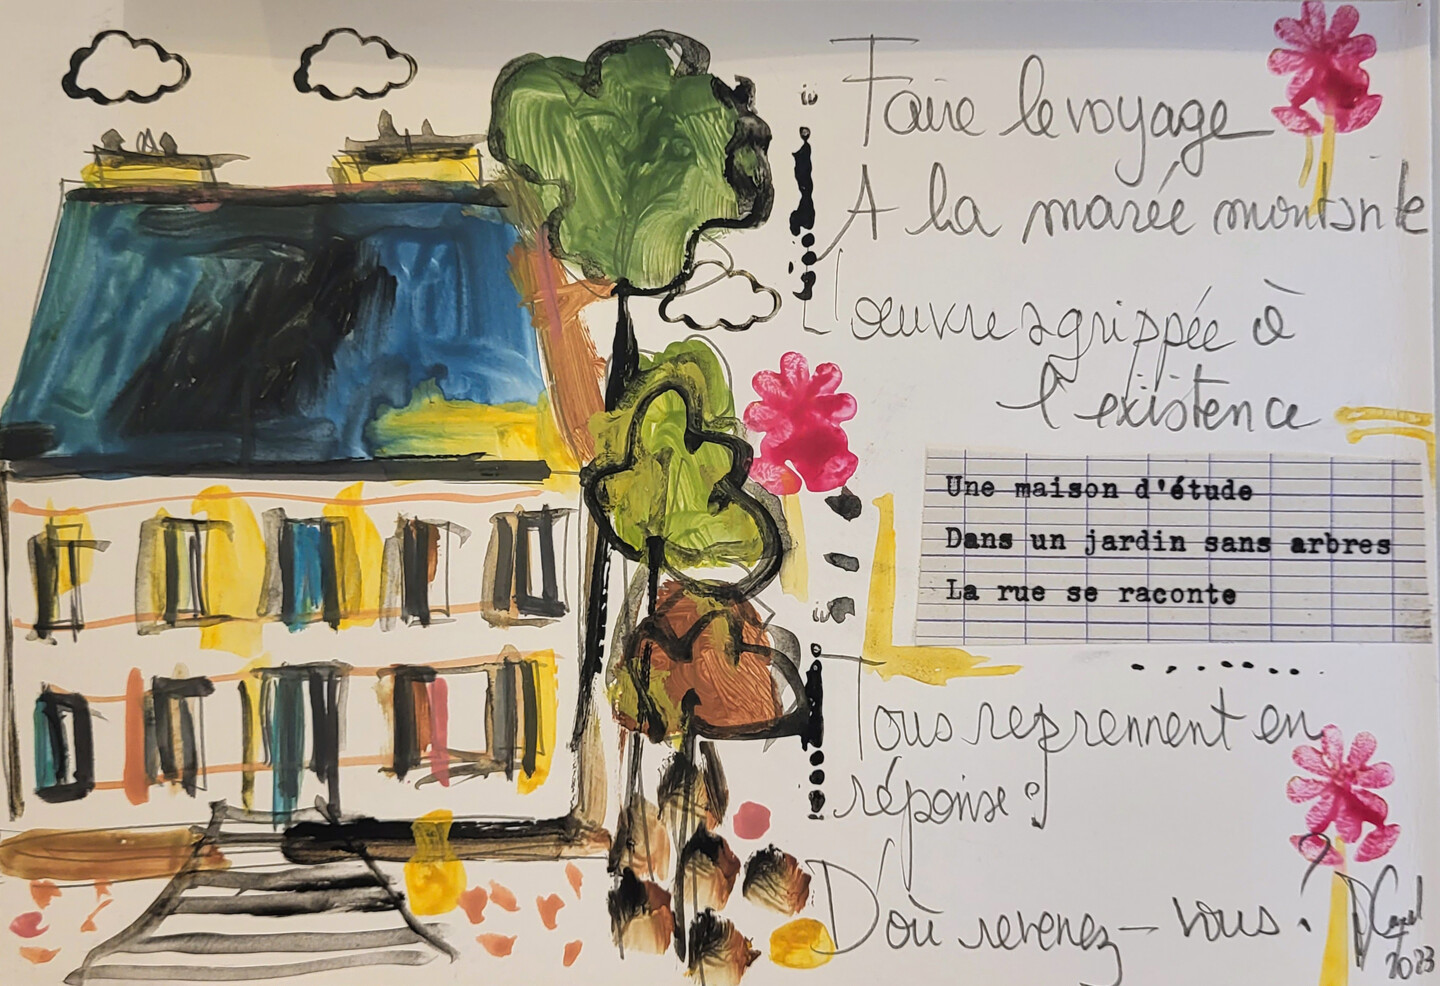 Faire le voyage
A la marée montante
L'œuvre agrippée à
l'existence
Une maison d'étude
Dans un jardin sans arbres
La rue se raconte
Tous reprennent en
réponse :
D'où revenez-vous ?
2023